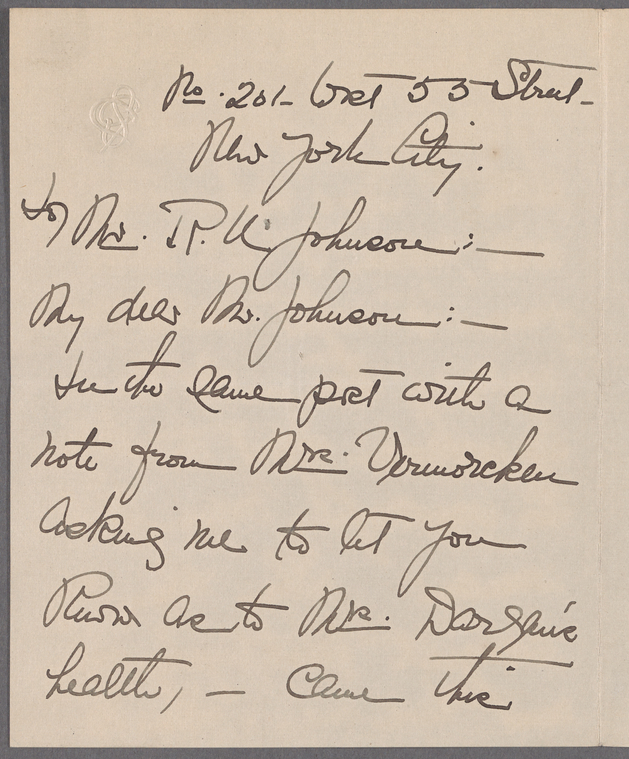 No. 201 - West 55 Street -
New York City.
to Mr. R. U. Johnson : —
My dear Mr. Johnson : —
In the same post with a
note from Mrs. Vermorcken
asking me to let you
Know as to Mrs. Dargan's
health, — Came this